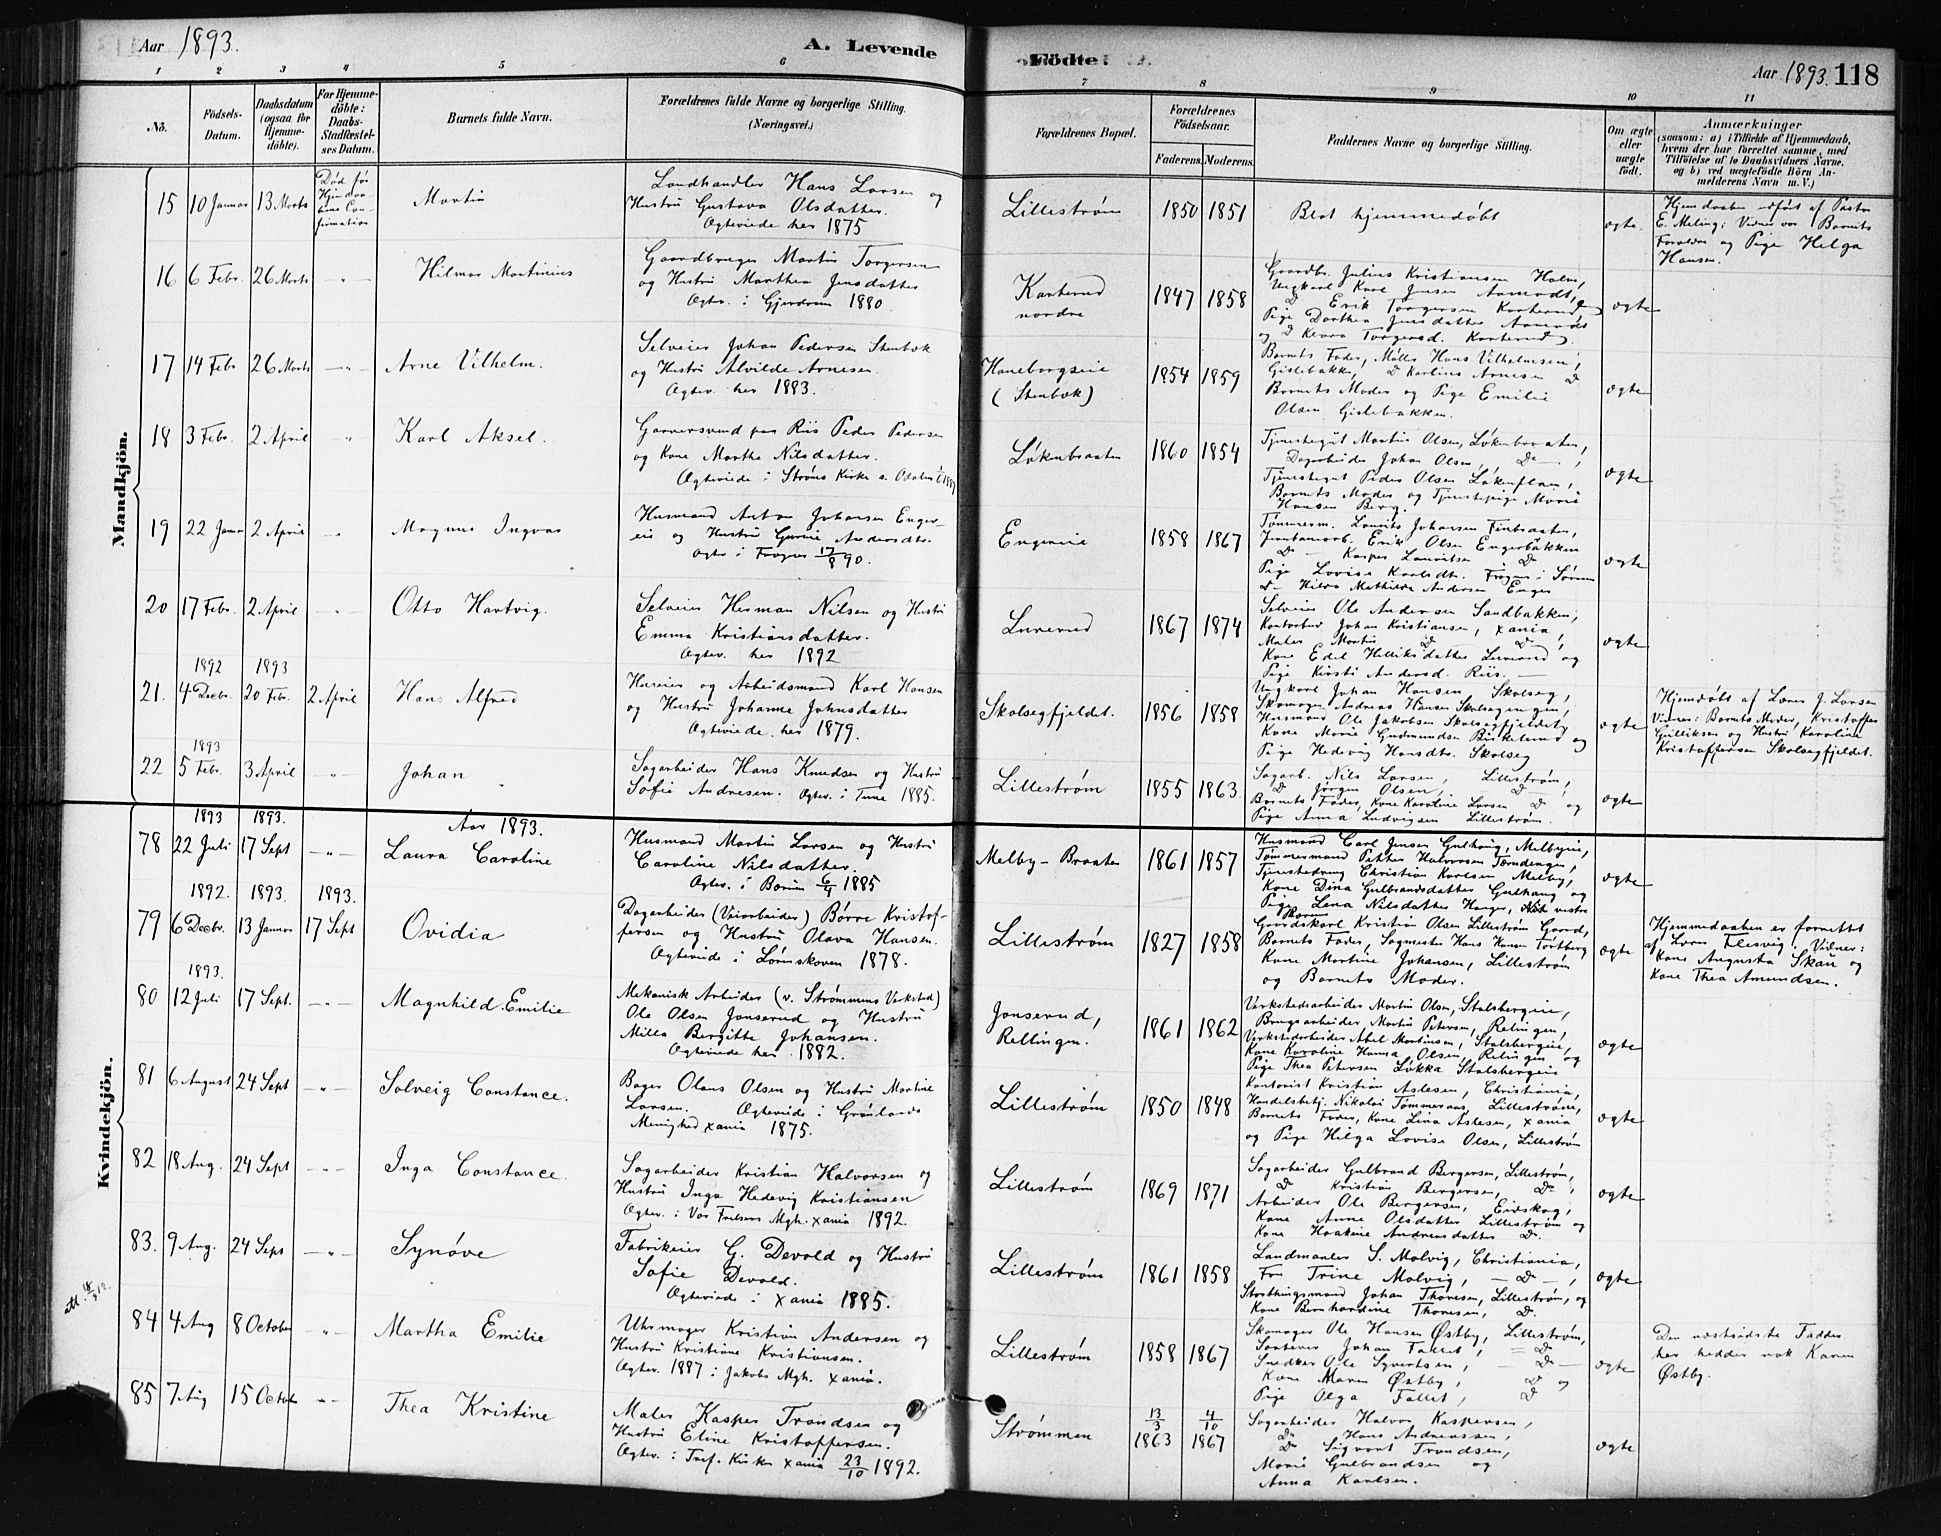 Aar 1893.
A. Levende
Födte.
Aar 1893. 118
1 2 3 4 5 6 7 8 9 10 11
No.
Födsels-
Datum.
Daabsdatum
(ogsaa for
Hjemme-
döbte).
For Hjemme-
döbte:
Daabs-
Stadfæstel-
ses Datum.
Barnets fulde Navn.
Forældrenes fulde Navne og borgerlige Stilling.
(Næringsvei.)
Forældrenes Bopæl.
Forældrenes
Födselsaar.
Faderens. Moderens.
Faddernes Navne og borgerlige Stilling.
Om ægte
eller
uægte
födt.
Anmærkninger
(saasom: a) i Tilfælde af Hjemmedaab,
hvem der har forrettet samme, med
Tilföielse af to Daabsvidners Navne,
og b) ved uægtefödte Börn An-
melderens Navn m. V.)
Mandkjön.
15 10 Januar 13 Marts
Død før
Martin
Landhandler Hans Larsen og
Hustru Gustava Olsdatter.
Ægteviede her 1875
Lillestrøm 1850 1851
Blot hjemmedøbt
ægte.
Hjemdaaben udført af Pastor
E. Meling; Vidner var Barnets
Forældre og Pige Helga
Hansen.
16 6 Febr. 26 Marts -"- Hilmar Martinius
Gaardbruger Martin Torgersen
og Hustru Marthea Jensdatter
Ægtev. i Gjerdrum 1880
Karterud
nordre
1847 1858
Gaardbr. Julius Kristiansen Holm,
Ungkarl Karl Jensen Aamodt,
D Erik Torgersen Karterud,
Pige Dorthea Jensdatter Aamodt
og D Kenra Torgersd. Karterud.
ægte
17 14 Febr 26 Marts -"- Arne Vilhelm.
Selveier Johan Pedersen Stenbæk
og Hustru Alvilde Arnesen.
Ægtev. her 1883.
Haneborgseie
(Stenbæk)
1854 1859
Barnets Fader, Møller Hans Vilhelmsen,
Gislebakke, D Karlius Arnesen D
Barnets Moder og Pige Emilie
Olsen Gislebakken.
ægte
18 3 Febr. 2 April -"- Karl Aksel.
Garversvend paa Riis Peder Pedersen
og Kone Martha Nilsdatter.
Ægteviede i Strøms Kirke s. Odalen 1887
Løkenbraaten 1860 1854
Tjenestegut Martin Olsen, Løkenbraaten,
Dagarbeider Johan Olsen, D-,
Tjenestegut Peder Olsen Løkenflaen,
Barnets Moder og Tjenestepige Marie
Hansen Berg.
ægte
19 22 Januar 2 April -"- Magnus Ingvar
Husmand Anton Johansen Enger-
eie og Hustru Gurine Andersdtr.
Ægtev i Frogner 17/8 90.
Engereie 1858 1867
Tømmerm. Laurits Johansen Finbraaten,
Jernbanearb. Erik Olsen Engerbakken
D - Kasper Lauritsen D
Pige Lovise Karlsdtr. Frogner i Sørum
D- Hilda Mathilde Andersen Enger
ægte
20 17 Febr. 2 April -"- Otto Hartvig.
Selveier Herman Nilsen og Hustru
Emma Kristiansdatter.
Ægtev. her 1892
Lurerud 1867 1874
Selveier Ole Andersen Sandbakken,
Kontorbud Johan Kristiansen, Xania,
Maler Martin D D-
Kone Edel Henriksdatter Lurerud og
Pige Kirsti Andersd. Riis.-
ægte
1892 1893
21. 4 Decbr. 20 Febr. 2 April Hans Alfred
Huseier og Arbeidsmand Karl Hansen
og Hustru Johanne Johnsdatter
Ægteviede her 1879.
Skolsegfjeldet. 1856 1858
Ungkarl Johan Hansen Skolseg,
Skomager Andreas Hansen Skolsegengen,
Husmand Ole Jakobsen Skolsegfjeldet,
Kone Marie Gudmundsen Birkelund og
Pige Hedevig Hansdtr. Skolseg
ægte
Hjemdøbt af Lærer J. Larsen
Vidner: Barnets Moder, Kristoffer
Gulliksen og Hustru Karoline
Kristoffersen Skolsegfjeldet.
1893
22 5 Febr. 3 April -"- Johan
Sagarbeider Hans Knudsen og Hustru
Sofie Andresen. Ægtev. i Tune 1885.
Lillestrøm 1855 1863
Sagarb. Nils Larsen, Lillestrøm,
D Jørgen Olsen, D-
Barnets Fader, Kone Karoline Larsen D og
Pige Anna Ludvigsen Lillestrøm.
ægte
Kvindekjön.
1893 1893. Aar 1893.
78 22 Juli 17 Sept -"- Laura Caroline
Husmand Martin Larsen og Hustru
Caroline Nilsdatter.
Ægtev. i Bærum 6/4 1885
Melby-Braaten 1861 1857
Husmand Carl Jensen Gulhaug, Melbyeie,
Tømmermand Petter Halvorsen Tærudenget,
Tjenestedreng Christian Karlsen Melby,
Kone Dina Gulbrandsdatter Gulhaug og
Pige Lena Nilsdatter Hanger, vestre
Bærum
ægte
1892. 1893. 1893.
79 6 Decbr. 13 Januar 17 Sept Ovidia
Dagarbeider (Veiarbeider) Børre Kristof-
fersen og Hustru Olava Hansen.
Ægteviede i Lørenskoven 1878.
Lillestrøm 1827 1858
Gaardskarl Kristian Olsen Lillestrøm Gaard,
Barnets Fader, Sagmester Hans Hansen Tortberg
Kone Martine Johansen, Lillestrøm
og Barnets Moder.
ægte
Hjemmedaaben er forrettet
af Lærer Flesvig. Vidner:
Kone Augusta Skau og
Kone Thea Amundsen.
1893.
80 12 Juli 17 Sept. -"- Magnhild Emilie
Mekanisk Arbeider (v. Strømmens Verksted)
Ole Olsen Jonserud og Hustru
Milla Bergitte Johansen.
Ægteviede her 1882.
Jonserud,
Rellingen.
1861 1862
Verkstedsarbeider Martin Olsen, Stalsbergeie,
Brugsarbeider, Martin Petersen, Relingen,
Verkstedarbeider Abel Mortinsen, Stalsbergeie,
Kone Karoline Hanna Olsen, Relingen og
Pige Thea Petersen Løkka Stalsbergeie
ægte
81 6 August 24 Sept -"- Solveig Constance.
Bager Olaus Olsen og Hustru Martine
Larsen. Ægteviede i Grønlands
Menighed Xania 1875.
Lillestrøm 1850 1848
Kontorist Kristian Aslesen, Christiania,
Handelsbetj. Nikolai Tømmeraas, Lillestrøm,
Barnets Fader, Kone Lina Aslesen, Xania
og Pige Helga Lovise Olsen, Lillestrøm
ægte
82 18 Aug. 24 Sept -"- Inga Constance.
Sagarbeider Kristian Halvorsen og
Hustru Inga Hedevig Kristiansen
Ægtev. i Vor Frelsers Mgh. Xania 1892.
Lillestrøm 1869 1871
Sagarbeider Gulbrand Bergersen, Lillestrøm,
D Kristian Bergersen, D-,
Arbeider Ole Bergersen, Eidskog,
Kone Anne Olsdatter Lillestrøm og
Kone Haakine Andreasdatter D.
ægte
83. 9 Aug. 24 Sept -"- Synøve
Fabrikeier G. Devold og Hustru
Sofie Devold.
Ægteviede i Xania 1885.
Lillestrøm 1861 1858
Landmaaler S. Malvig, Christiania,
Fru Trine Malvig, -D-,
Storthingsmand Johan Thoresen, Lillestrøm, og
Kone Bernhardine Thoresen, D.
ægte
att. 18/9 12.
84 4 Aug 8 October -"- Martha Emilie
Uhrmager Kristian Andersen og
Hustru Kristiane Kristiansen.
Ægtev. 1887 i Jakobs Mgh. Xania.
Lillestrøm 1858 1867
Skomager Ole Hansen Østby, Lillestrøm,
Sorterer Johan Fallet, -D-
Snedker Ole Syvertsen, -D-
Kone Maren Østby, D og
Pige Olga Fallet, D
ægte
Den næstsidste Fadder
her hedder nok Karen
Østby.
85 7 Aug 15 October -"- Thea Kristine
Maler Kasper Trondsen og
Hustru Eline Kristoffersen.
Ægtev. i Tref. Kirke Xania 23/10 1892.
Strømmen 13/3 1863 4/10 1867
Sagarbeider Halvor Kaspersen,
D Hans Andreassen,
D Sigvart Trondsen,
Marie Gulbrandsen og
Anna Karlsen.
ægte